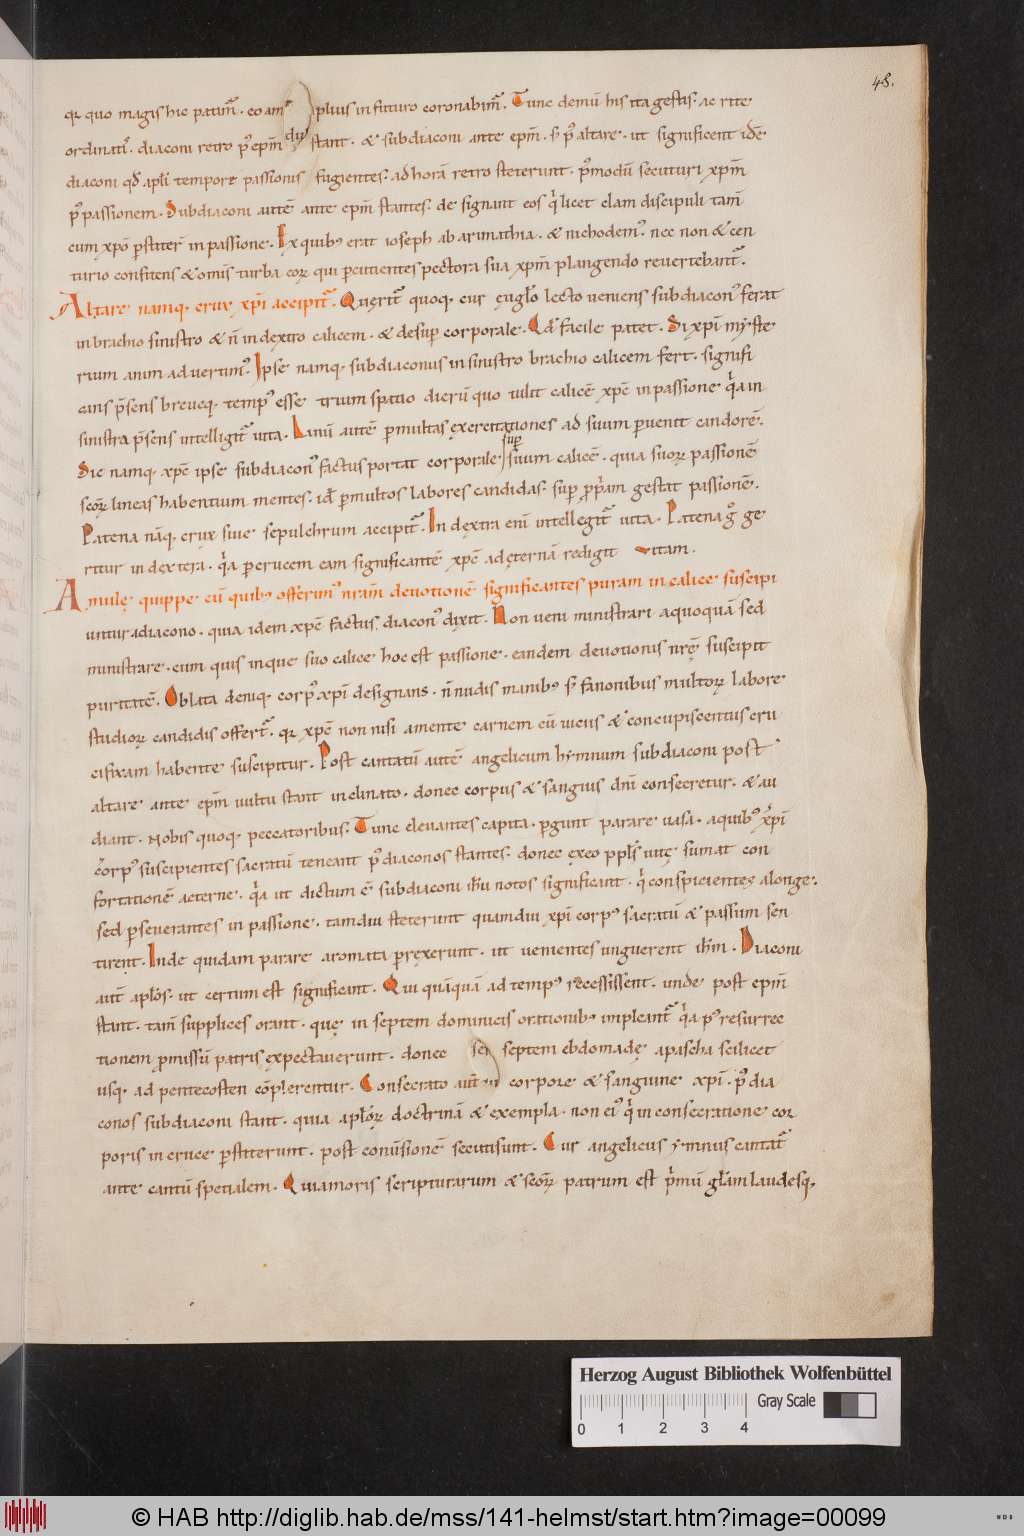 48.
qr quo magis hic patim᷑. eo am plius in futuro coronabim᷑. Tunc demū his ita gestis. ac rite
ordinatꝰ. diaconi retro pꝰ ep̄m stant. & subdiaconi ante ep̄m. s; pꝰ altare. ut significent idē
diaconi qđ apl̄i tempore passionis fugientes. ad horā retro steterunt. pꝰmodū secuturi xp̄m
pꝰ passionem. Subdiaconi autē ante ep̄m stantes. designant eos qͥ licet clam discipuli tam̄
cum xp̄o ꝑstiter̄ in passione. Ex quibꝰ erat ioseph ab arimathia. & nichodemꝰ. nec non & cen
turio confitens & om̄is turba eoꝝ qui percutientes pectora sua xp̄m plangendo revertebant᷑.
Altare namq; crux xp̄i accipit᷑. Quęrit᷑ quoq; cur ęugl̄o lecto veniens subdiaconꝰ ferat
in brachio sinistro & n̄ in dextro calicem. & desuꝑ corporale. Qđ facile patet. Si xp̄i myste
rium animaduerimꝰ. Ipse namq; subdiaconus in sinistro brachio calicem fert. signifi
cans p̄sens breueq; tempꝰ esse trium spatio dierū quo tulit calicē xp̄c in passione qͣa in
sinistra p̄sens intelligit᷑ uita. Linū autē ꝑ multas exercitationes ad suum peruenit candorē.
Sic namq; xp̄c ipse subdiaconꝰ factus portat corporale suꝑ suum calicē. quia suoꝝ passionē
sc̄oꝝ lineas habentium mentes. id ē ꝑ multos labores candidas. suꝑ ꝓpͥam gestat passionē.
Patena nāq; crux siue sepulchrum accipit᷑. In dextra enī intellegit᷑ uita. Patena gͦ ge
ritur in dextera. qͣa per crucem eam significantē xp̄c ad ęternā redigit uitam.
Amulę quippe cū quibꝰ offerimꝰ nrām deuotionē significantes puram in calice suscipi
untur a diacono. quia idem xp̄c factus diaconꝰ dixit. Non ueni ministrari a quoquā sed
ministrare. cum quis in que suo calice hoc est passione. eandem deuotionis nr̄ę suscipit
puritatē. Oblata deniq; corpꝰ xp̄i designans. n̄ nudis manibꝰ s; fanonibus multoꝝ labore
studioꝝ candidis offert᷑. qr xp̄c non nisi a mente carnem cū uiciis & concupiscentiis cru
cifixam habente suscipitur. Post cantatū autē angelicum hymnum subdiaconi post
altare ante ep̄m uultu stant inclinato. donec corpus & sanguis dn̄i consecretur. & au
diant. Nobis quoq; peccatoribus. Tunc eleuantes capita. ꝑgunt parare uasa. a quibꝰ xp̄i
corpꝰ suscipientes sacratū teneant pꝰ diaconos stantes. donec ex eo ppl̄s uitę sumat con
fortationē aeterne. qͣa ut dictum ē subdiaconi ih̄u notos significant. qͥ conspicientes a longe.
sed perseuerantes in passione. tamdiu steterunt quamdiu xp̄i corpꝰ sacratū & passum sen
tirent. Inde quidam parare aromata perrexerunt. ut uenientes unguerent ih̄m. Diaconi
aut̄ apl̄os. ut certum est significant. Qui quāquā ad tempꝰ recessissent. unde post ep̄m
stant. tam̄ supplices orant. quę in septem dominicis orationibꝰ impleant᷑ qͣa pꝰ resurrec
tionem ꝓmissū patris expectauerunt. donec septem ebdomadę a pascha scilicet
usq; ad pentecosten cōplerentur. Consecrato aut̄ corpore & sanguine xp̄i. pꝰ dia
conos subdiaconi stant. quia apl̄oꝝ doctrinā & exempla. non eiꝰ qͥ in consecratione cor
poris in cruce ꝑstiterunt. post conūsionē secuti sunt. Cur angelicus ymnus cantat᷑
ante cantū specialem. Quia moris scripturarum & sc̄oꝝ patrum est pͥmū gl̄am laudesq;
Herzog August Bibliothek Wolfenbüttel
Gray Scale
0 1 2 3 4
© HAB http://diglib.hab.de/mss/141-helmst/start.htm?image=00099